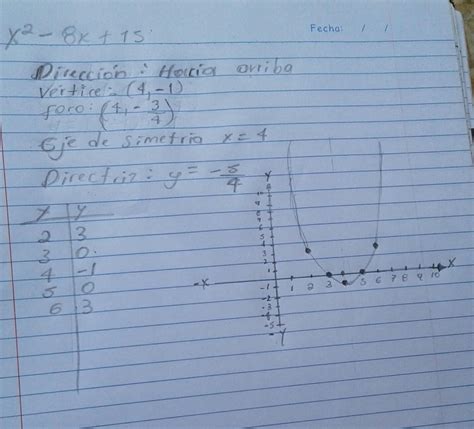 Fecha: / /
x² - 8x + 15
Dirección: Hacia arriba
Vértice: (4, -1)
foro: (4, -3/4)
Eje de simetria x = 4
Directriz: y = -5/4
x y
2 3
3 0
4 -1
5 0
6 3
Y
-X X
1 2 3 4 5 6 7 8 9 10
-1
-2
-3
-4
-5
-Y